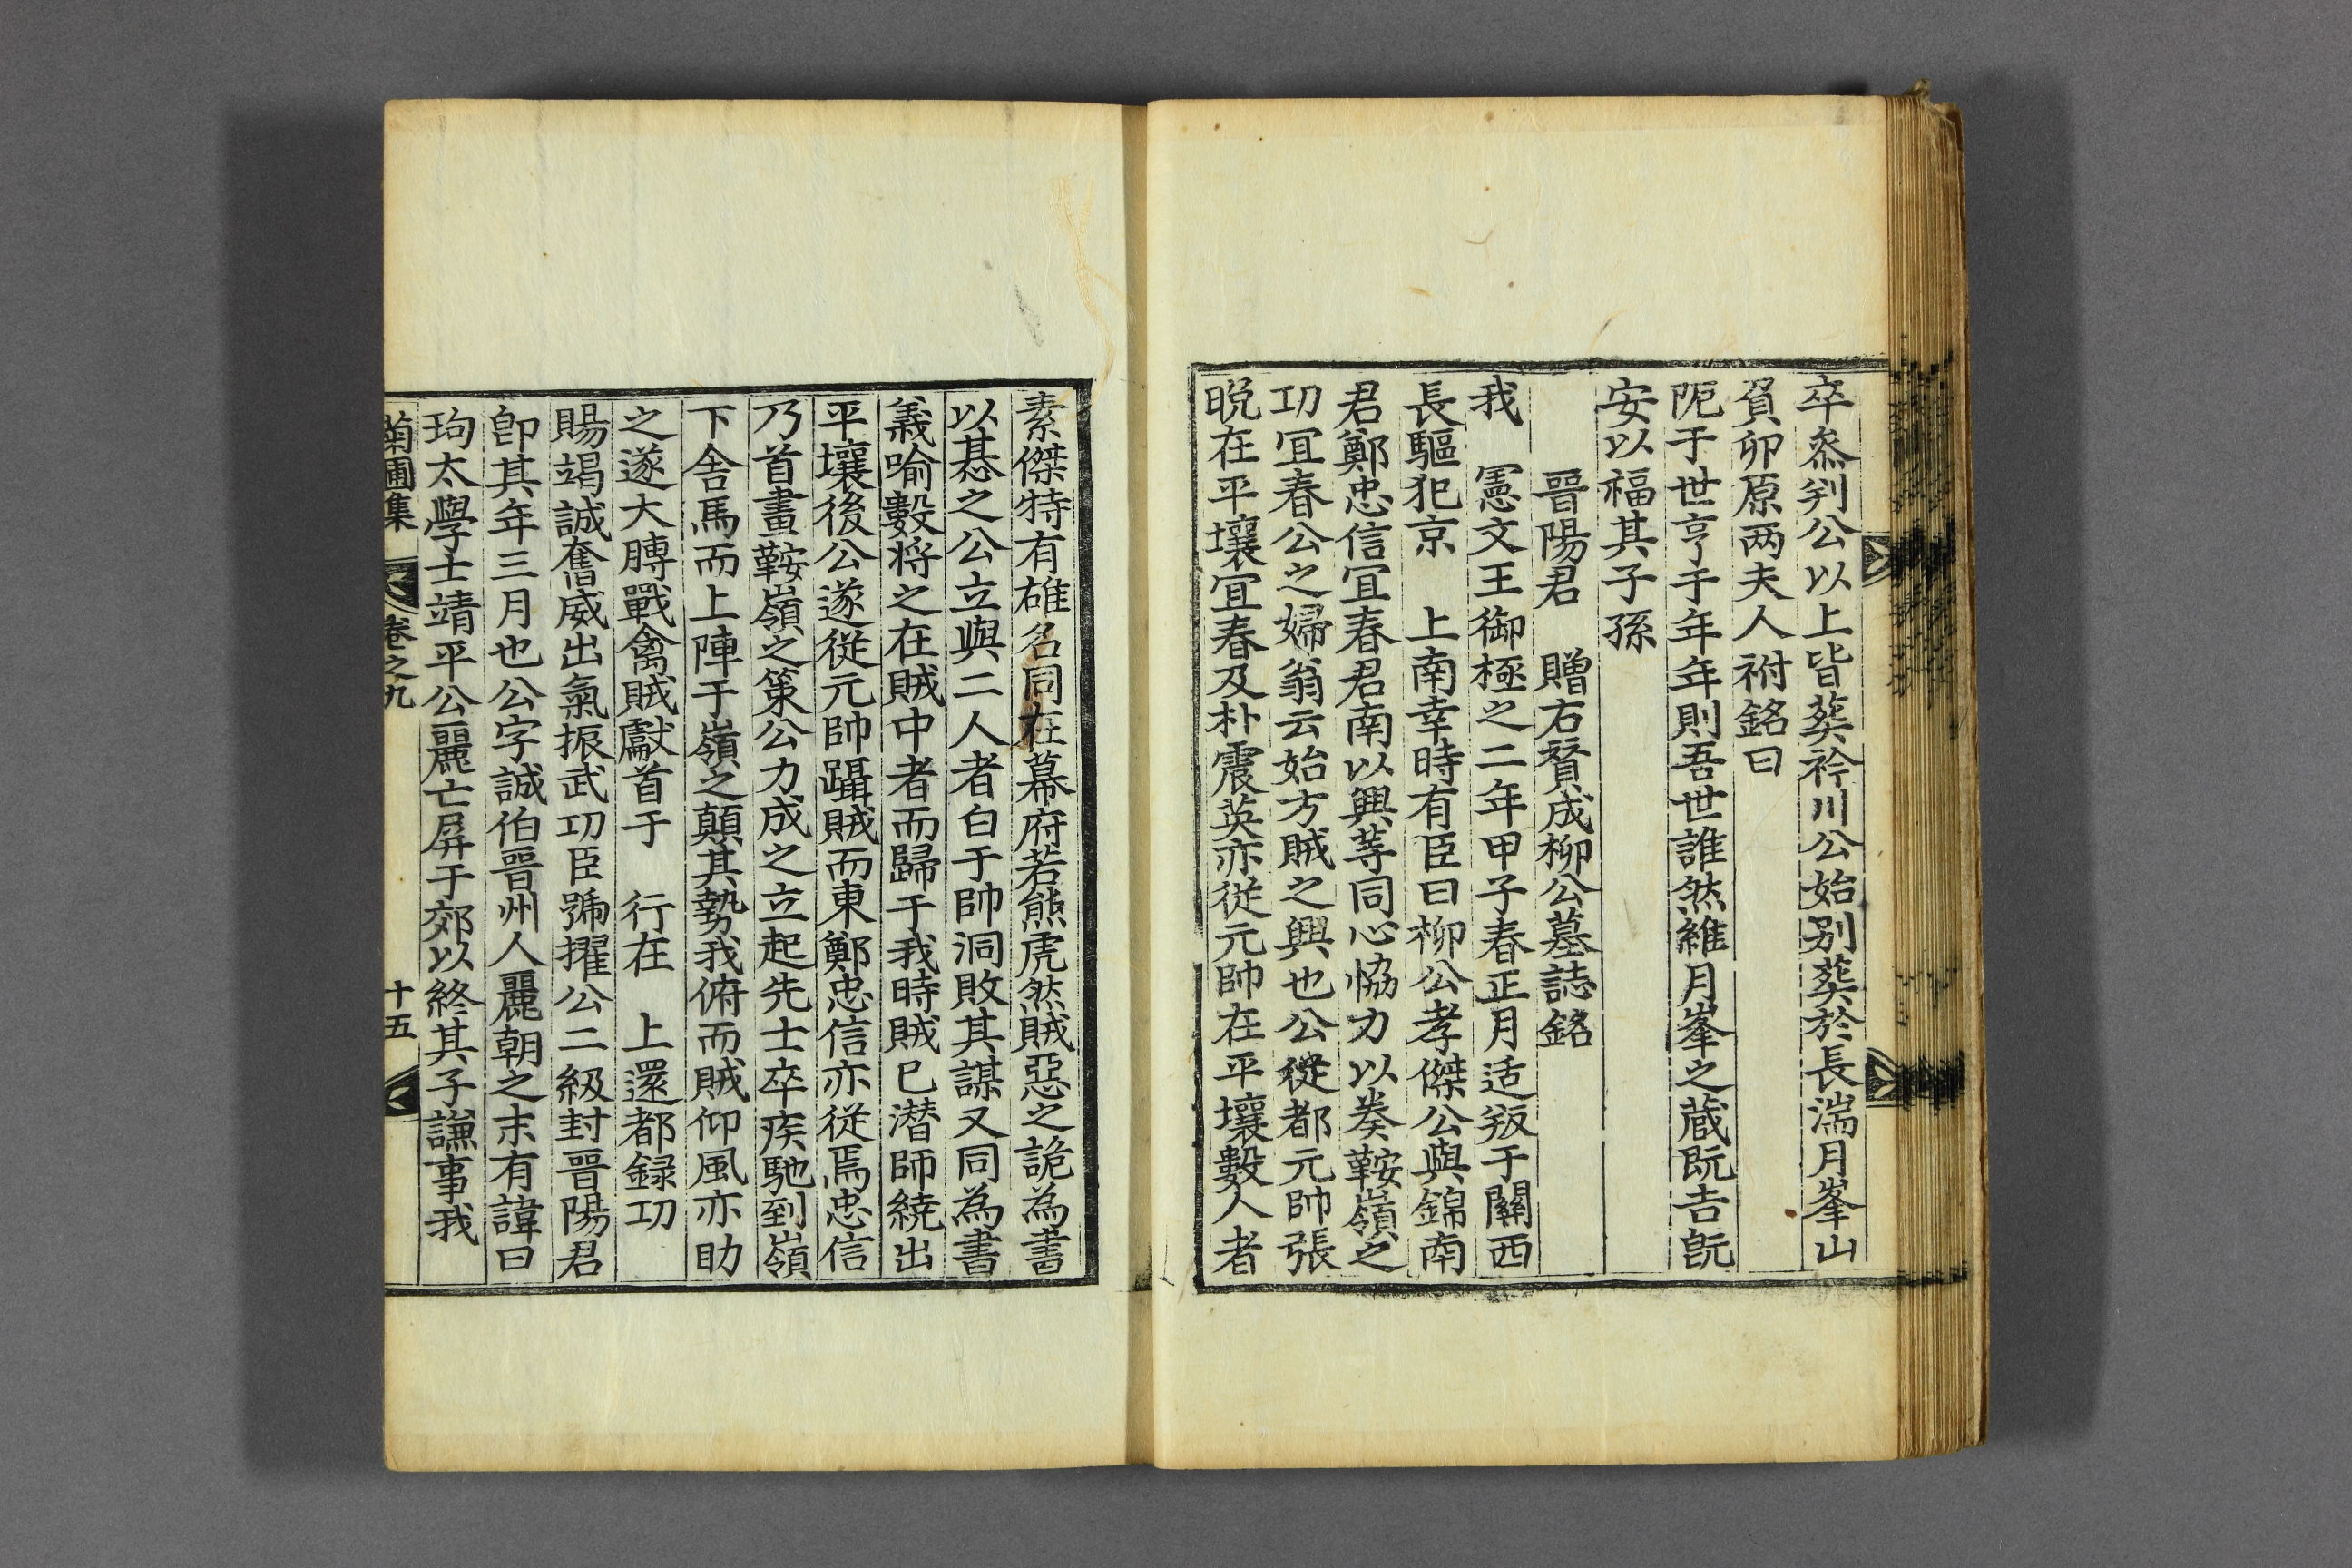 卒叅判公以上皆葬衿川公始別葬於長湍月峯山
負卯原两夫人祔銘曰
阨于世亨于年年則吾世誰然維月峯之蔵旣吉旣
安以福其子孫
晉陽君　贈右贊成柳公墓誌銘
我　憲文王御極之二年甲子春正月适叛于關西
長驅犯京　上南幸時有臣曰柳公孝傑公與錦南
君鄭忠信冝春君南以興䓁同心恊力以奏鞍嶺之
功冝春公之婦翁云始方賊之興也公從都元帥張
晩在平壤冝春及朴震英亦從元帥在平壤數人者
素傑特有雄名同在幕府若熊虎然賊惡之詭為書
以惎之公立與二人者白于帥洞敗其謀又同為書
義喻數将之在賊中者而歸于我時賊已潛師繞出
平壤後公遂從元帥躡賊而東鄭忠信亦從焉忠信
乃首畫鞍嶺之策公力成之立起先士卒疾馳到嶺
下舍馬而上陣于嶺之顛其勢我俯而賊仰風亦助
之遂大膊戰禽賊獻首于　行在　上還都録功
賜竭誠奮威出氣振武功臣號擢公二級封晉陽君
卽其年三月也公字誠伯晉州人麗朝之末有諱曰
珣太學士靖平公麗亡屏于郊以終其子謙事我
菊圃集　卷之九　十五